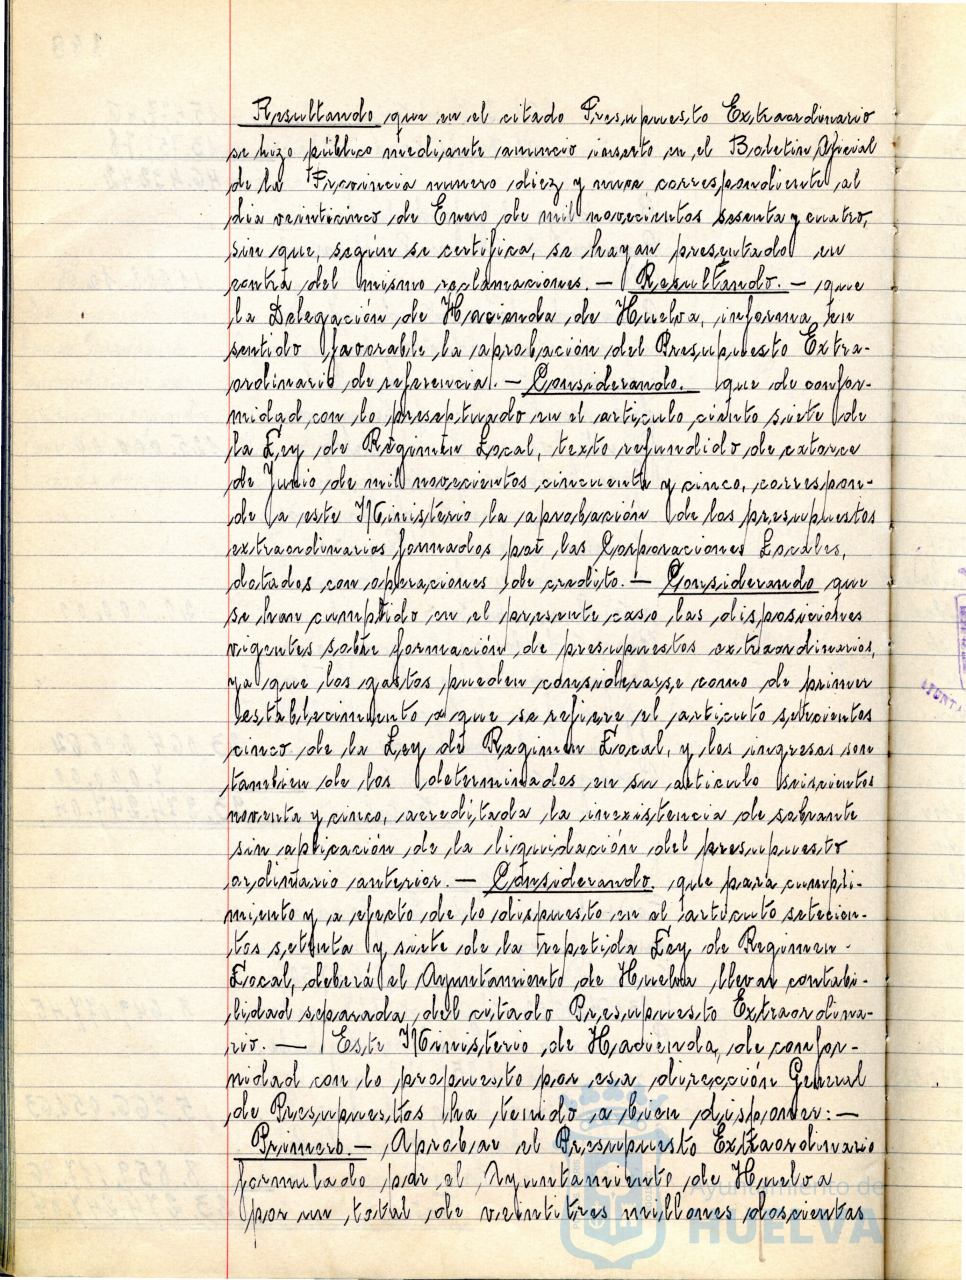 Resultando que en el citado Presupuesto Extraordinario
se hizo público mediante anuncio inserto en el Boletin Oficial
de la Provincia numero diez y nueve correspondiente al
dia veinticinco de Enero de mil novecientos sesenta y cuatro,
sin que, según se certifica, se hayan presentado en
contra del mismo reclamaciones. — Resultando. — que
la Delegación de Hacienda de Huelva, informa en
sentido favorable la aprobación del Presupuesto Extra-
ordinario de referencia. — Considerando. que de confor-
midad con lo preseptuado en el articulo ciento siete de
la Ley de Regimen Local, texto refundido de catorce
de Junio de mil novecientos cincuenta y cinco, correspon-
de a este Ministerio la aprobación de los presupuestos
extraordinarios formados por las Corporaciones Locales,
dotados con operaciones de credito. — Considerando que
se han cumplido en el presente caso las disposiciones
vigentes sobre formación de presupuestos extraordinarios,
ya que los gastos pueden considerarse como de primer
establecimiento a que se refiere el articulo setecientos
cinco de la Ley de Regimen Local, y los ingresos son
tambien de los determinados en su articulo seiscientos
noventa y cinco, acreditada la inexistencia de sobrante
sin aplicación de la liquidación del presupuesto
ordinario anterior. — Considerando. que para cumpli-
miento y a efecto de lo dispuesto en el articulo setecien-
tos setenta y siete de la repetida Ley de Regimen
Local, deberá el Ayuntamiento de Huelva llevar contabi-
lidad separada del citado Presupuesto Extraordina-
rio. — Este Ministerio de Hacienda, de confor-
midad con lo propuesto por esa dirección General
de Presupuestos ha tenido a bien disponer: —
Primero. — Aprobar el Presupuesto Extraordinario
formulado por el Ayuntamiento de Huelva
por un total de veintitres millones doscientas
Ayuntamiento de
HUELVA